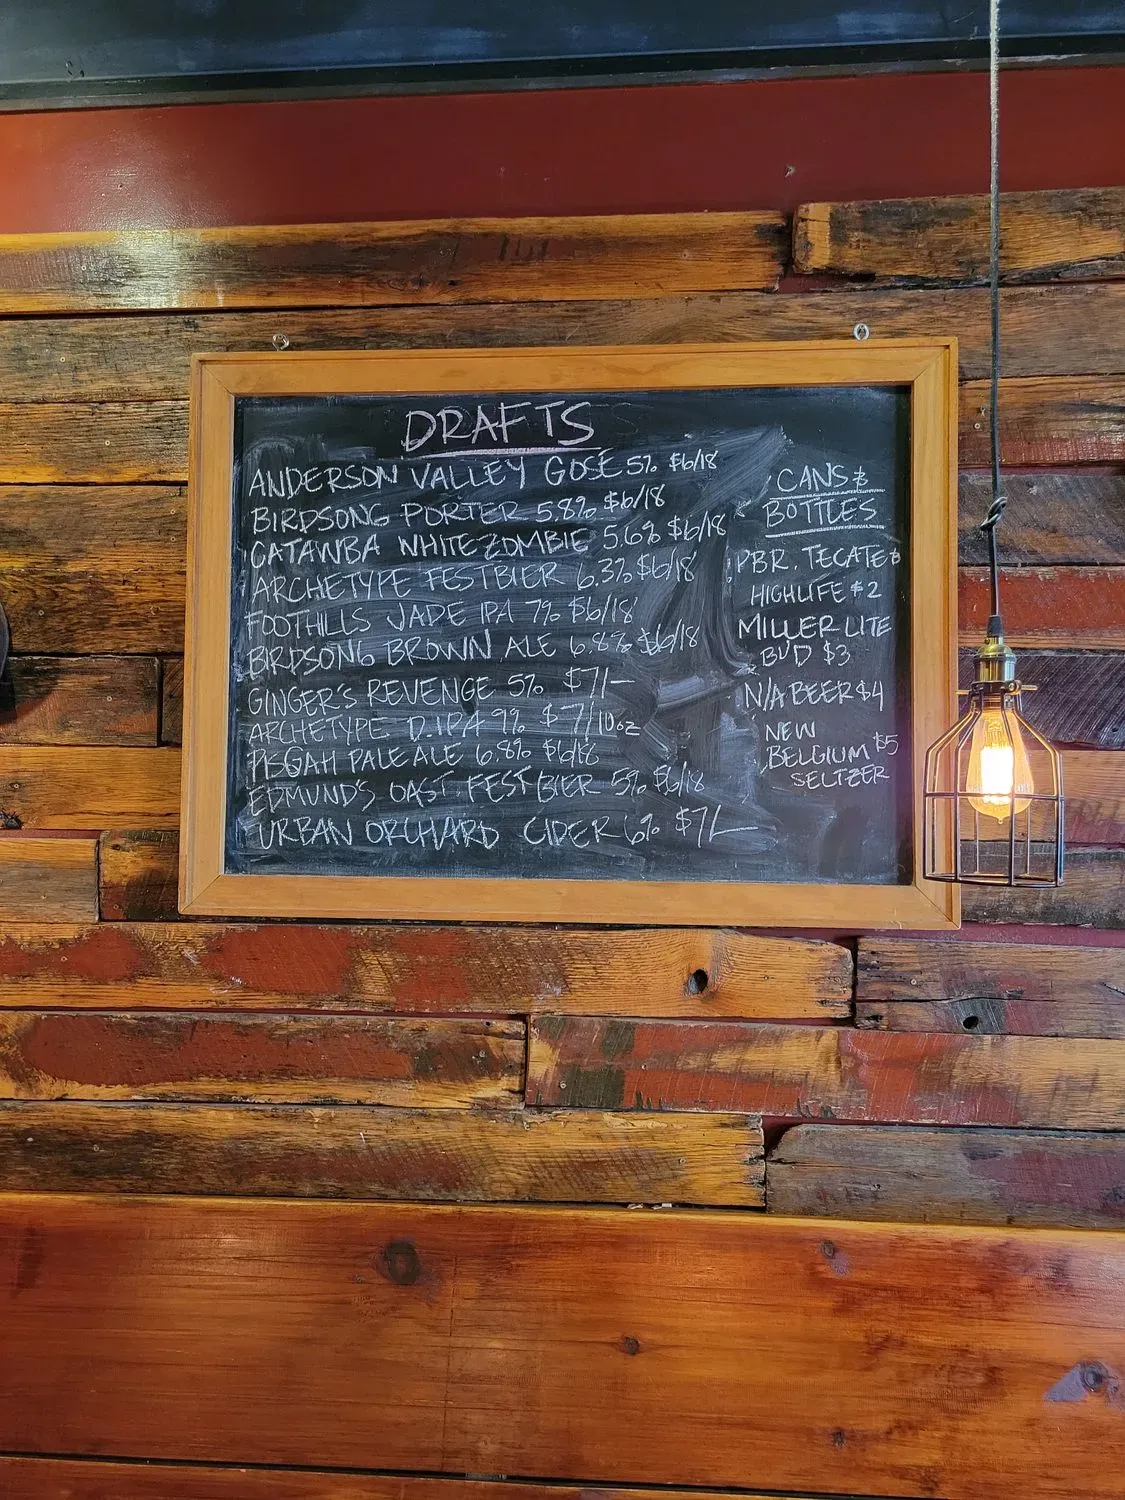 DRAFTS
ANDERSON VALLEY GOSE 5% $6/18
BIRDSONG PORTER 5.8% $6/18
CATAWBA WHITE ZOMBIE 5.6% $6/18
ARCHETYPE FESTBIER 6.3% $6/18
FOOTHILLS JADE IPA 7% $6/18
BIRDSONG BROWN ALE 6.8% $6/18
GINGER'S REVENGE 5% $7/—
ARCHETYPE D.IPA 9% $7/10oz
PISGAH PALE ALE 6.8% $6/18
EDMUND'S OAST. FESTBIER 5% $6/18
URBAN ORCHARD CIDER 6% $7/—
CANS &
BOTTLES
PBR. TECATE &
HIGHLIFE $2
MILLER LITE
BUD $3
N/A BEER $4
NEW
BELGIUM $5
SELTZER